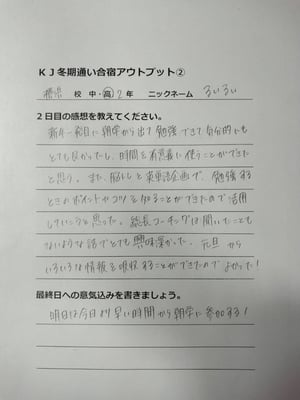 KJ冬期通い合宿アウトプット②
橋本 校 中・高 2年 ニックネーム るいるい
2日目の感想を教えてください。
新年一発目に朝学から出て勉強できて自分的にも
とても良かったし、時間を有意義に使うことができた
と思う。また、脳トレと東東法企画で、勉強する
ときのポイントやコツを知ることができたので活用
していこうと思った。総長コーチングは聞いたことも
ないような話でとても興味深かった。元旦から
いろいろな情報を吸収することができたのでよかった!
最終日への意気込みを書きましょう。
明日は今日より早い時間から朝学に参加する!